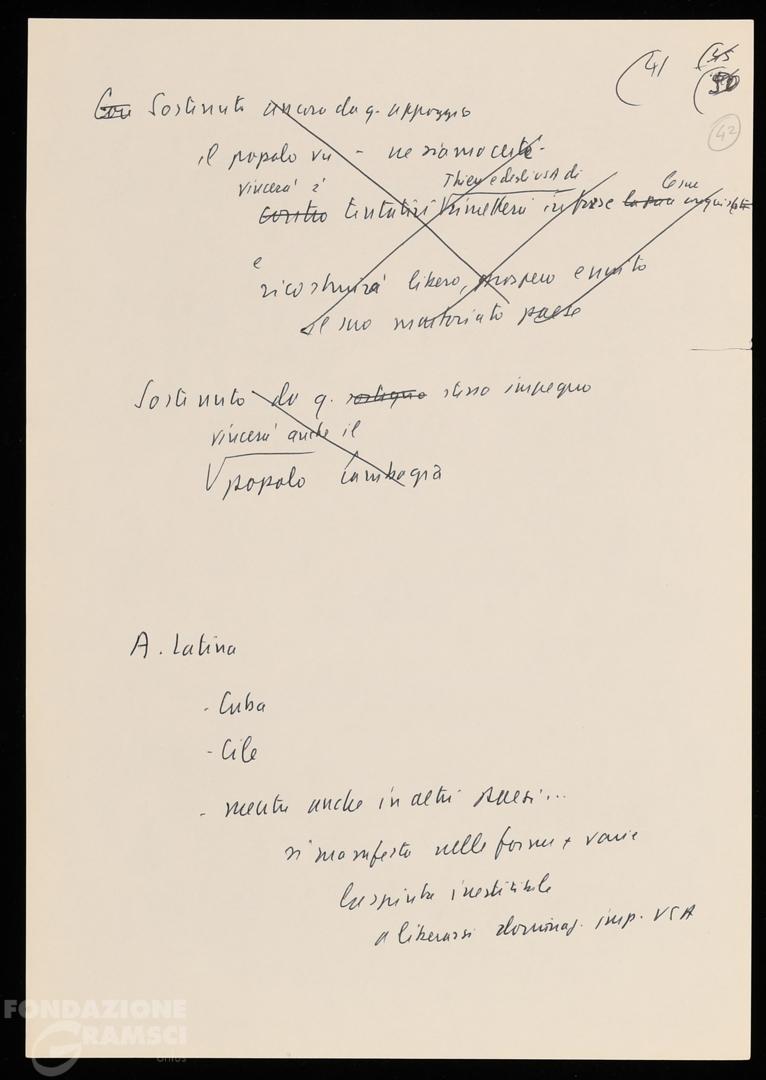 (41 (45
(50
42
Con Sostenuto ancora da q. appoggio
il popolo vn - ne siamo certi -
vincerà i Thieu e degli USA di le sue
contro tentativi rimettere in forse la sua conquiste
e
ricostruirà libero, prospero e unito
il suo martoriato paese
Sostenuto da q. sostegno stesso impegno
vincerà anche il
popolo Cambogia
A. Latina
- Cuba
- Cile
- mentre anche in altri paesi...
si manifesta nelle forme + varie
la spinta irresistibile
a liberarsi dominaz. imp. USA
FONDAZIONE
GRAMSCI
onlus